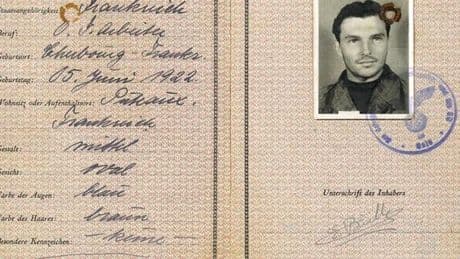 Staatsangehörigkeit: Frankreich
Beruf: Arbeiter
Geburtsort: Cherbourg - Frankr.
Geburtstag: 15. Juni 1922
Wohnsitz oder Aufenthaltsort: Puteaux,
Frankreich
Gestalt: mittel
Gesicht: oval
Farbe der Augen: blau
Farbe des Haares: braun
Besondere Kennzeichen: - keine -
Unterschrift des Inhabers